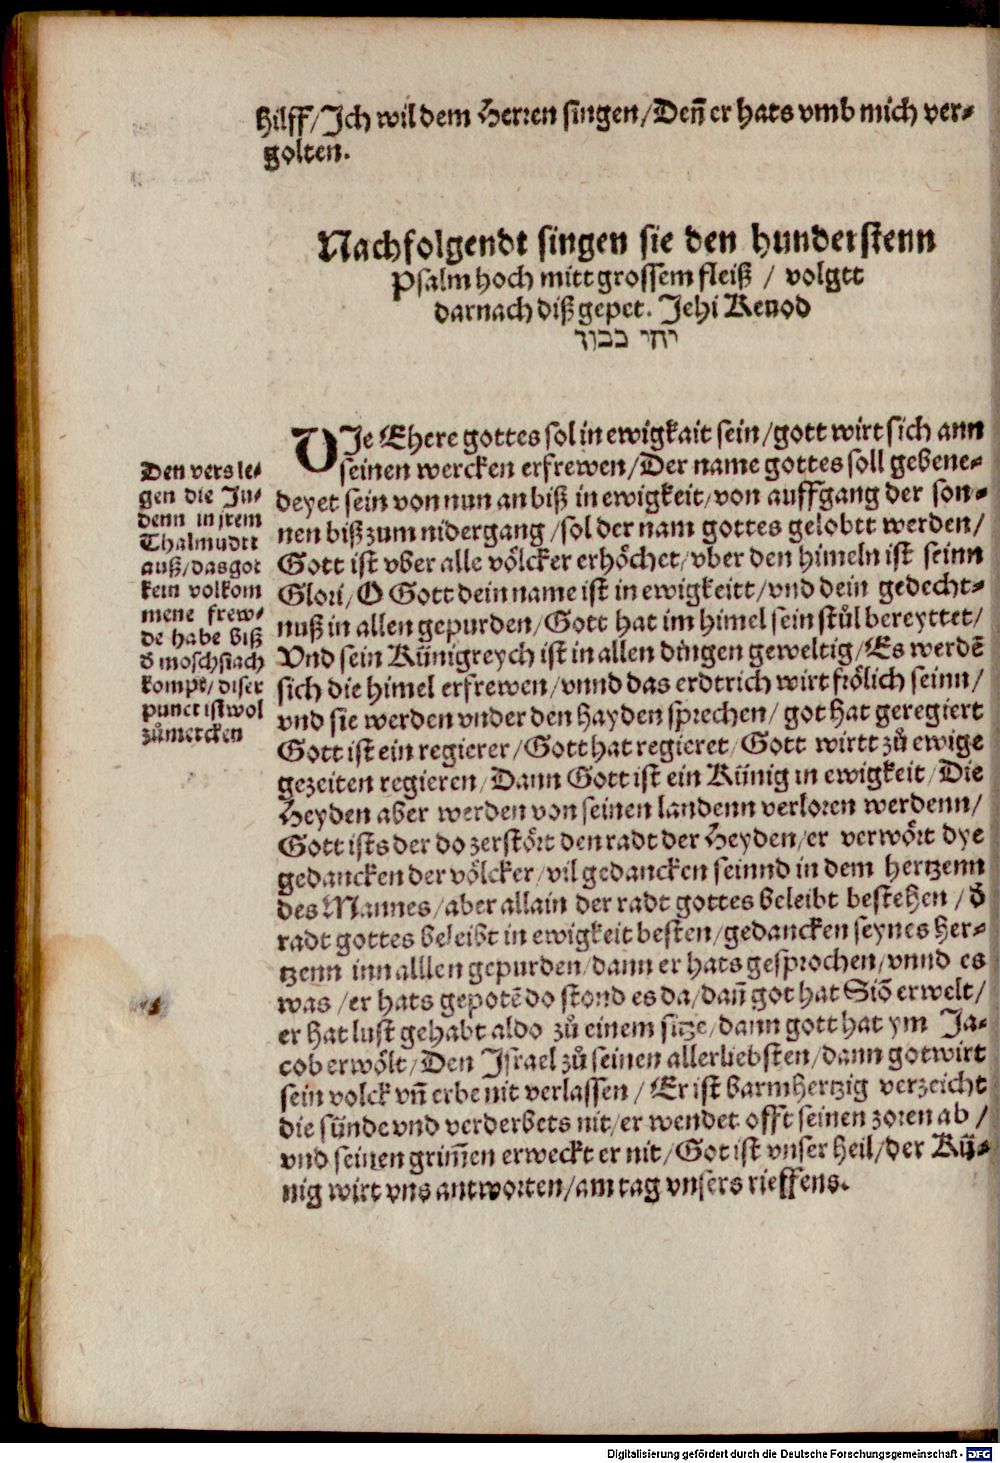 hilff/Ich wil dem Herren singen/Deñ er hats vmb mich ver-
golten.
Nachfolgendt singen sie den hunderstenn
Psalm hoch mitt grossem fleiß / volgtt
darnach diß gepet. Jehi Keuod
יהי כבוד
DIe Ehere gottes sol in ewigkait sein/gott wirt sich ann
seinen wercken erfrewen/Der name gottes soll gebene-
deyet sein von nun an biß in ewigkeit/von auffgang der son-
nen biß zum nidergang/sol der nam gottes gelobtt werden/
Gott ist vber alle völcker erhöchet/vber den himeln ist seinn
Glori/O Gott dein name ist in ewigkeitt/vnd dein gedecht-
nuß in allen gepurden/Gott hat im himel sein stůl bereyttet/
Vnd sein Künigreych ist in allen dingen geweltig/Es werdē
sich die himel erfrewen/vnnd das erdtrich wirt frölich seinn/
vnd sie werden vnder den hayden sprechen/got hat geregiert
Gott ist ein regierer/Gott hat regieret/Gott wirtt zů ewige
gezeiten regieren/Dann Gott ist ein Künig in ewigkeit/Die
Heyden aber werden von seinen landenn verloren werdenn/
Gott ists der do zerstört den radt der Heyden/er verwört dye
gedancken der völcker/vil gedancken seinnd in dem hertzenn
des Mannes/aber allain der radt gottes beleibt bestehen/d̄
radt gottes beleibt in ewigkeit besten/gedancken seynes her-
tzenn inn alllen gepurden/dann er hats gesprochen/vnnd es
was/er hats gepotē do stond es da/dañ got hat Siō erwelt/
er hat lust gehabt aldo zů einem sitze/dann gott hat ym Ja-
cob erwölt/Den Israel zů seinen allerliebsten/dann got wirt
sein volck vñ erbe nit verlassen/Er ist barmhertzig verzeicht
die sünde vnd verderbets nit/er wendet offt seinen zoren ab/
vnd seinen grim̄en erweckt er nit/Got ist vnser heil/der Kü-
nig wirt vns antworten/am tag vnsers rieffens.
Den vers le-
gen die Ju-
denn in jrem
Thalmudtt
auß/das got
kein volkom
mene frew-
de habe biß
d̄ moschiach
kompt/diser
punct ist wol
zůmercken
Digitalisierung gefördert durch die Deutsche Forschungsgemeinschaft - DFG